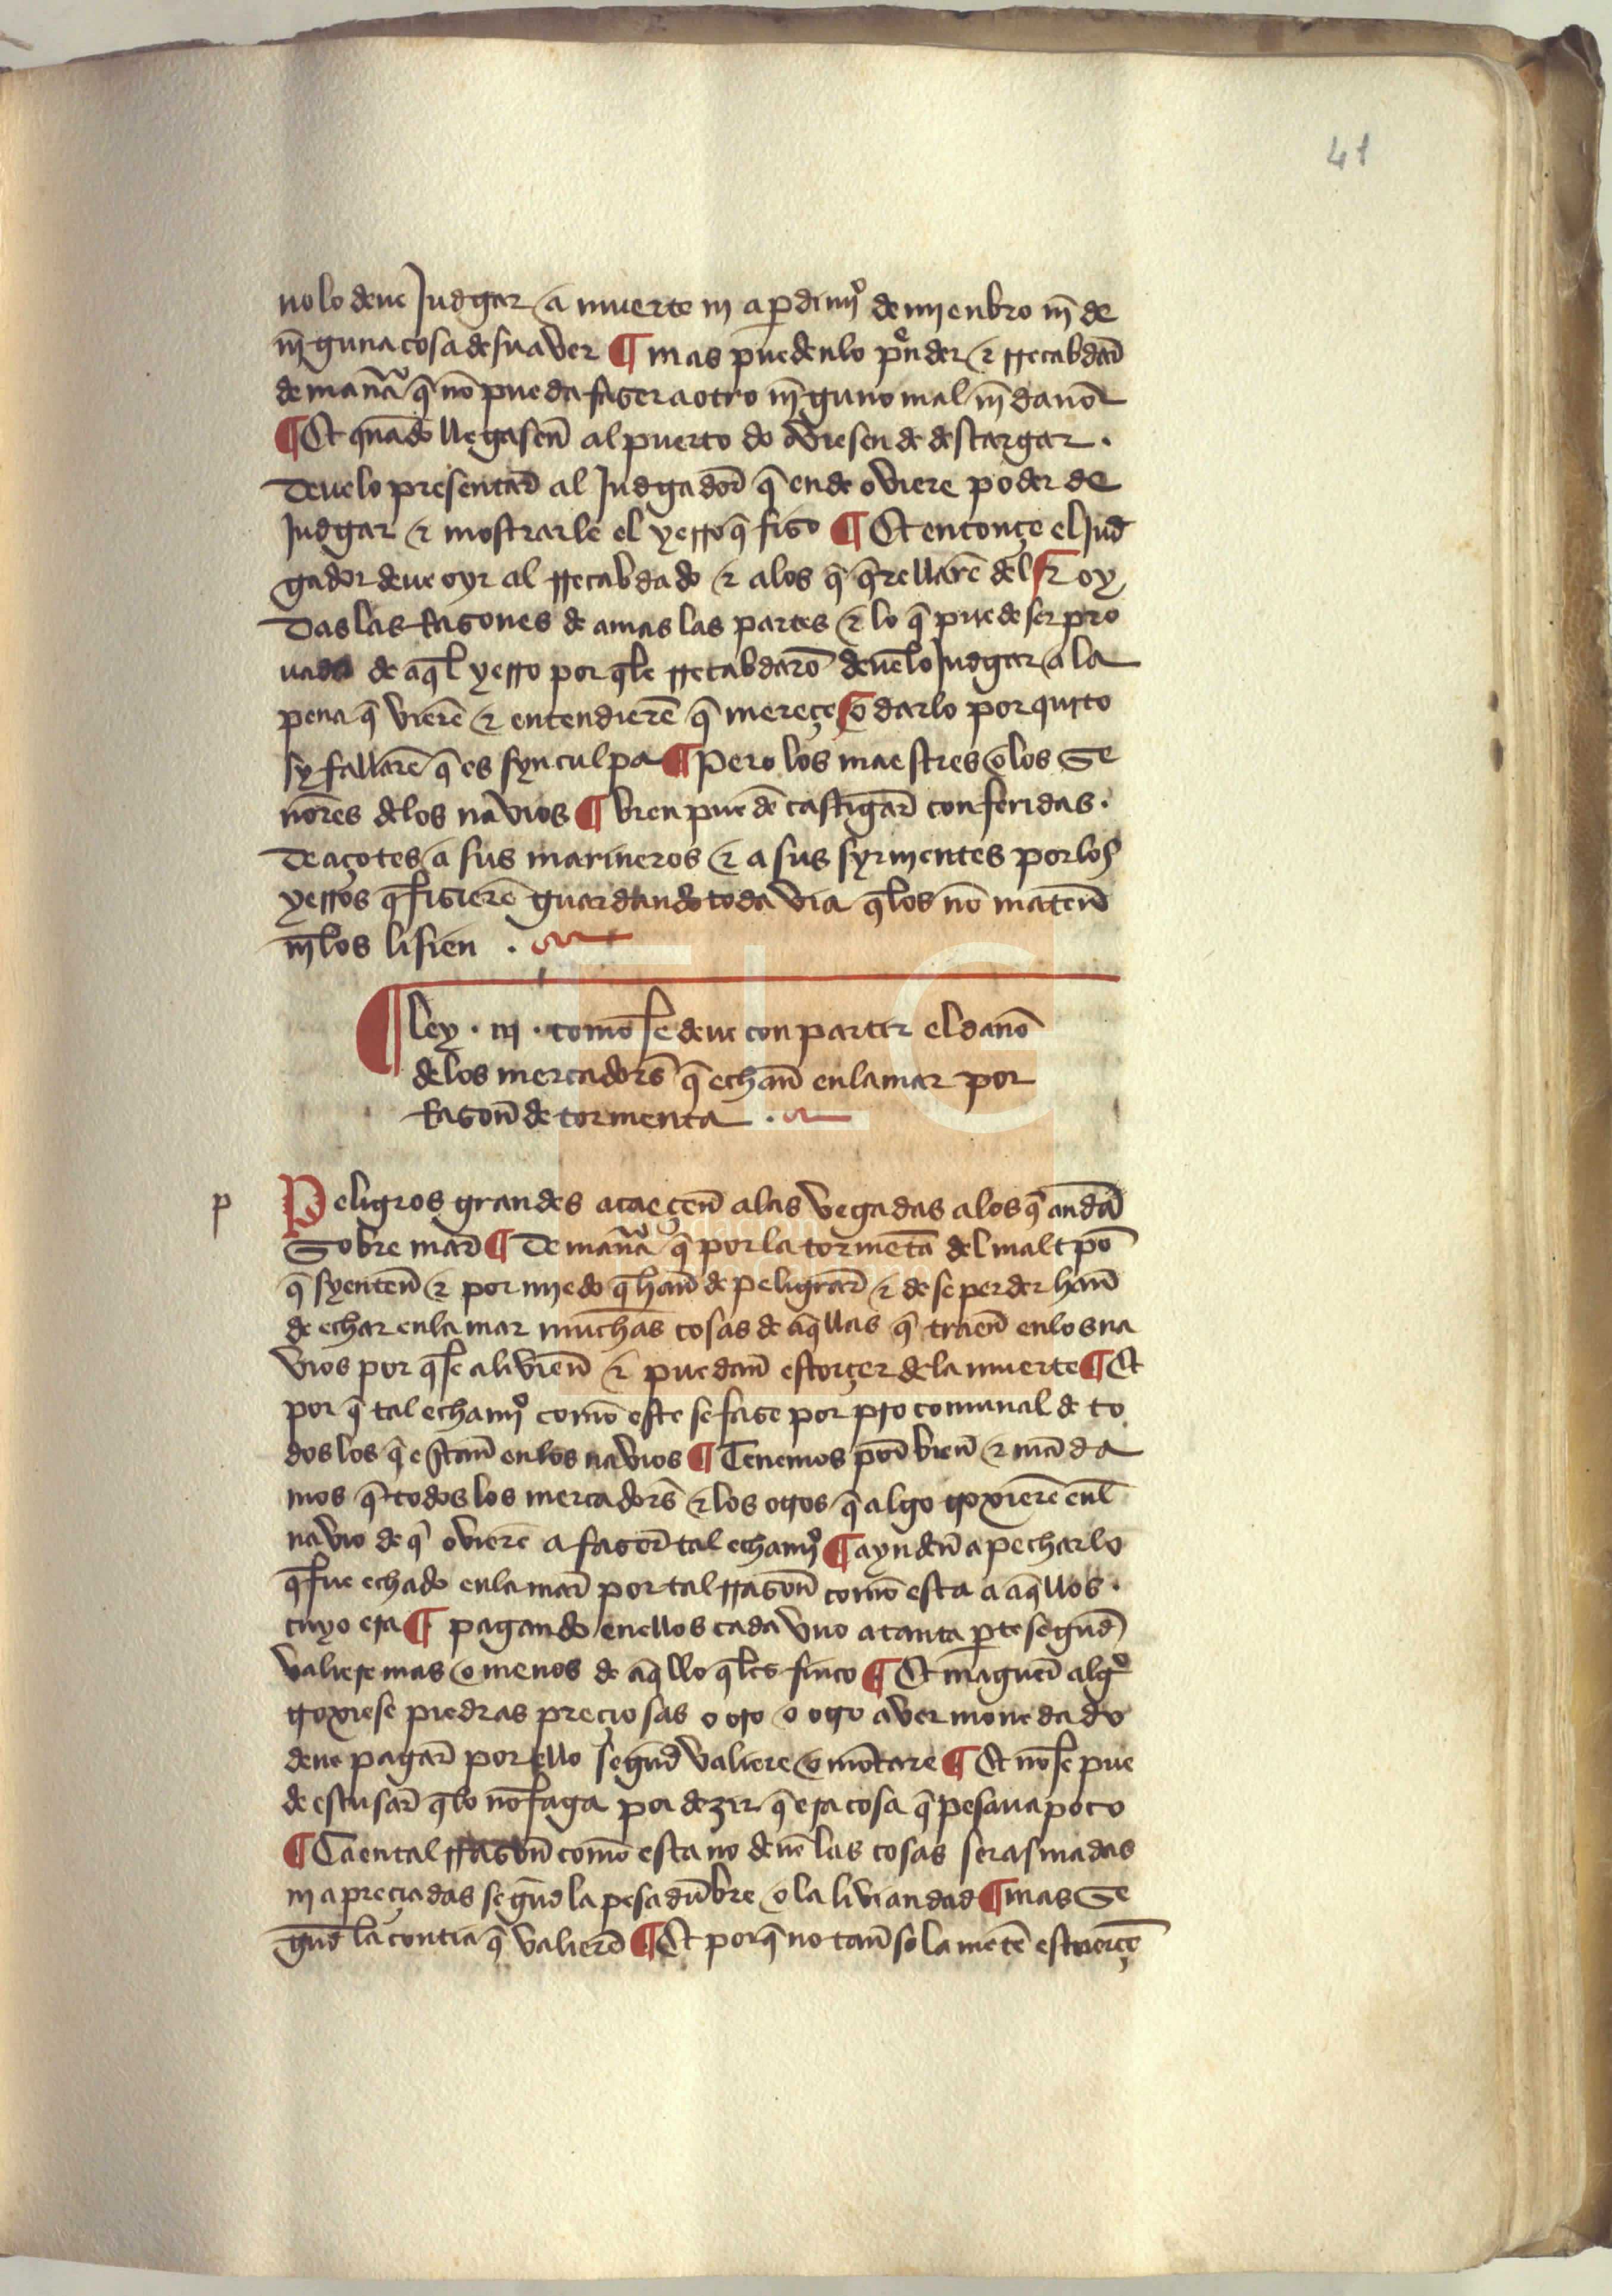 41
no lo deue Judgar a muerte nj a perdimjº de mienbro nj̄ de
nj̄guna cosa de su auer ¶ mas puedenlo prender ⁊ rrecabdar̄
de manȃ q̄ nō pueda faser a otro nj̄guno mal nj̄ danō
¶ Et quādo llegasen̄ al puerto do ovie sen de descargar .
deuelo presentar̄ al Judgador̄ q̄ ende oviere poder de
Judgar ⁊ mostrarle el yerro q̄ fiso ¶ Et entonçe el Jud
gador deue oyr al rrecabdado ⁊ alos q̄ q̄rellarē del ⁊ oy
das las Rasones de amas las partes ⁊ lo q̄ puede ser pro
uado de aq̄l yerro por q̄le rrecabdarō deuēlo Judgar a la
pena q̄ vierē ⁊ entendierē q̄ mereçe o darlo por quito
sy fallarē q̄ es syn culpa ¶ Pero los maestres o los Se
nōres delos navios ¶ bien puedē castigar̄ con feridas .
de açotes a sus marineros ⁊ a sus syruientes por los
yerros q̄ fisierē guardando toda via q̄los nō maten̄
nj̄ los lisien .
¶ ley . iij . comō se deue conpartir el danō
delos mercadorēs q̄ echan̄ enla mar por
Rason̄ de tormenta .
p
Peligros grandes acaeçen̄ alas vegadas alos q̄ andā
Sobre mar̄ ¶ De manȃ q̄ por la tormētā del mal tpō
q̄ syenten̄ ⁊ por miedo q̄ han̄ de peligrar̄ ⁊ de se perder han̄
de echar enla mar muchās cosas de aq̄llas q̄ traen̄ enlos na
vios por q̄ se alivien̄ ⁊ puedan̄ estorçer dela muerte ¶ Et
por q̄ tal echamjº comō este se fase por pro comunal de to
dos los q̄ estan̄ enlos navios ¶ Tenemos por̄ bien̄ ⁊ māda
mos q̄ todos los mercadorēs ⁊ los otros q̄ algo troxierē enl̄
navio de q̄ ovierē a faser̄ tal echamjº ¶ ayuden̄ a pechar lo
q̄ fue echado enla mar̄ por tal rrason̄ comō esta a aq̄llos .
cuyo era ¶ pagando enellos cada vno atanta parte segund̄
valiese mas o menos de aq̄llo q̄les finco ¶ Et maguer̄ algº
troxiese piedras preçiosas o oro o otro aver monedado
deue pagar̄ por ello segūd valiere o mōtare ¶ Et nō se pue
de escusar̄ q̄ lo nō faga por dezir q̄ era cosa q̄ pesaua poco
¶ Ca en tal rrason̄ comō esta no deuē las cosas ser asmadas
nj apreçiadas segūd la pesadūbre o la liviandad ¶ mas Se
gūd la contia q̄ valierē ¶ Et por q̄ no tan̄ sola mētē estuerçē